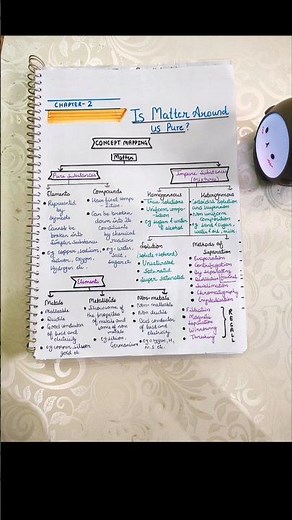 CHAPTER-2
Is Matter Around
us Pure?
CONCEPT MAPPING
Matter
Pure Substances
Impure Substances
(Mixture)
Elements
Represented
by
Symbols
Cannot be
broken into
Simpler Substances
eg. copper, sodium,
silicon, oxygen,
Hydrogen etc.
Compounds
Have fixed comp-
Can be broken
down into its
constituents
by chemical
reactions
eg. water,
Salt, Sugar etc.
Homogeneous
True solutions
Uniform compo-
sition
eg. Sugar & water
& alcohol
Heterogeneous
Colloidal solution
and suspension
Non uniform
composition
eg. Sand & sugar,
Solution
(solute + solvent)
Unsaturated
Saturated
Super saturated
Methods of
Separation
Evaporation
Centrifugation
By separating
funnel
Sublimation
Chromatography
Crystallisation
Filtration
Magnetic
Separation
Winnowing
Threshing
RECALL
Elements
Metals
Malleable
Ductile
Good conductor
of heat and
electricity
eg. copper, silicon
gold etc.
Metalloids
Show some of
the properties
of metals and
some of non
metals
eg. silicon,
Germanium
Non-metals
Non malleable
Non ductile
Bad conductor
of heat and
electricity
eg. oxygen, H,
N, S etc.